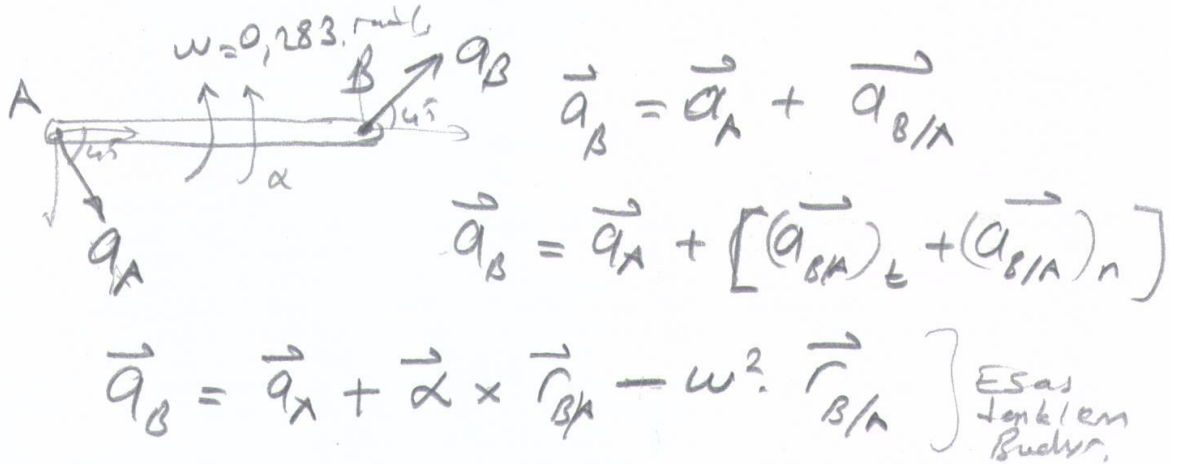 ω=0,283 rad/s
A
B
a_B
45
45
α
a_A
\vec{a}_B = \vec{a}_A + \vec{a}_{B/A}
\vec{a}_B = \vec{a}_A + [(\vec{a}_{B/A})_t + (\vec{a}_{B/A})_n]
\vec{a}_B = \vec{a}_A + \vec{α} × \vec{r}_{B/A} − ω². \vec{r}_{B/A}
Esas
denklem
Budur.